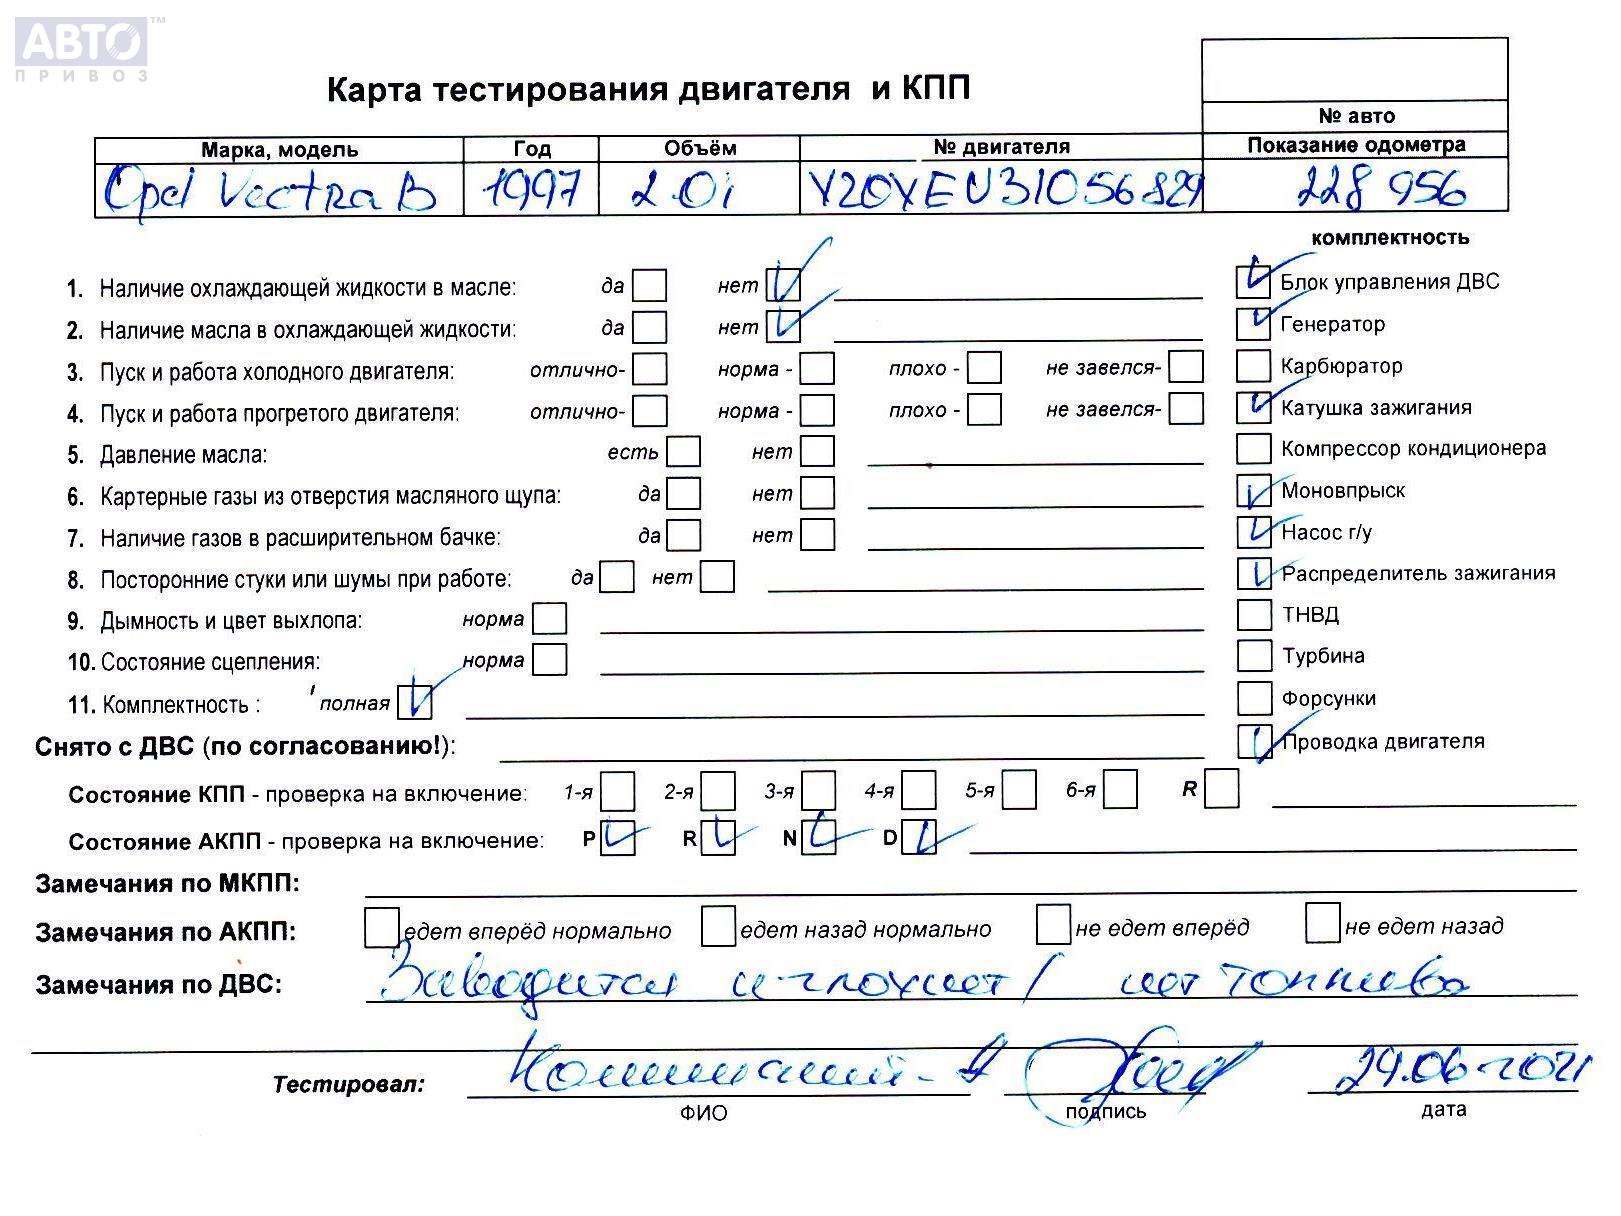 АВТО™
ПРИВОЗ
Карта тестирования двигателя и КПП
№ авто
Марка, модель Год Объём № двигателя Показание одометра
Opel Vectra B 1997 2.0i 228 956
комплектность
1. Наличие охлаждающей жидкости в масле: да нет Блок управления ДВС
2. Наличие масла в охлаждающей жидкости: да нет Генератор
3. Пуск и работа холодного двигателя: отлично- норма - плохо - не завелся- Карбюратор
4. Пуск и работа прогретого двигателя: отлично- норма - плохо - не завелся- Катушка зажигания
5. Давление масла: есть нет Компрессор кондиционера
6. Картерные газы из отверстия масляного щупа: да нет Моновпрыск
7. Наличие газов в расширительном бачке: да нет Насос г/у
8. Посторонние стуки или шумы при работе: да нет Распределитель зажигания
9. Дымность и цвет выхлопа: норма ТНВД
10. Состояние сцепления: норма Турбина
11. Комплектность : полная Форсунки
Снято с ДВС (по согласованию!): Проводка двигателя
Состояние КПП - проверка на включение: 1-я 2-я 3-я 4-я 5-я 6-я R
Состояние АКПП - проверка на включение: P R N D
Замечания по МКПП:
Замечания по АКПП: едет вперёд нормально едет назад нормально не едет вперёд не едет назад
Замечания по ДВС: Заводится и глохнет / нет топлива
Тестировал: 29.06.2021
ФИО подпись дата